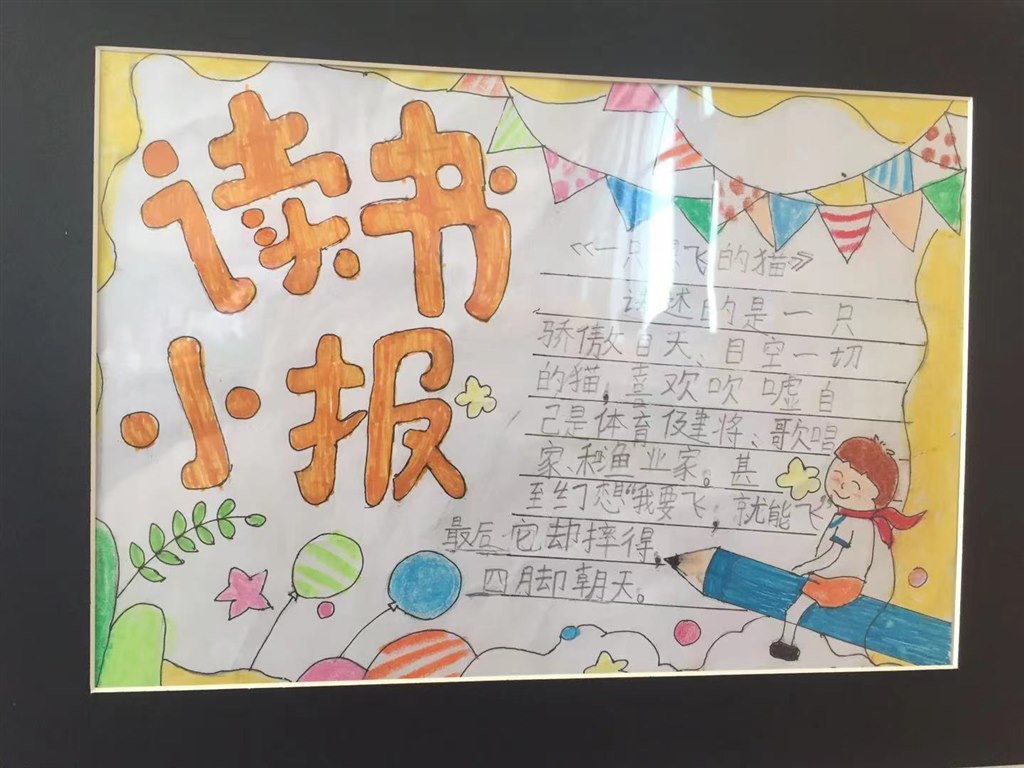 读书
小报
《一只想飞的猫》
讲述的是一只
骄傲自大、目空一切
的猫,喜欢吹嘘自
己是体育健将、歌唱
家、和鱼业家。甚
至幻想“我要飞,就能飞”
最后它却摔得
四月却朝天。